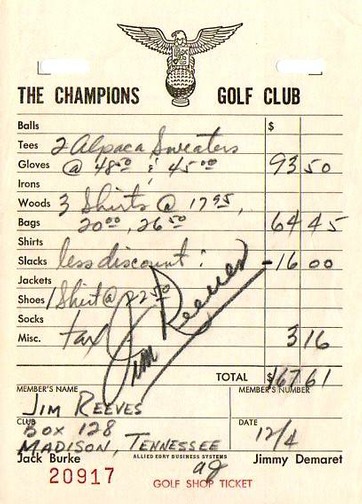 THE CHAMPIONS GOLF CLUB
Balls $
Tees 2 Alpaca Sweaters
Gloves @ 48⁵⁰ & 45⁰⁰ 93 50
Irons
Woods 3 Shirts @ 17⁹⁵,
Bags 20⁰⁰, 26⁵⁰ 64 45
Shirts
Slacks less discount : -16 00
Jackets
Shoes 1 Shirt @ 22⁵⁰
Socks
Misc. tax 3 16
Jim Reeves
TOTAL $167 61
MEMBER'S NAME MEMBER'S NUMBER
JIM REEVES
CLUB
BOX 128 DATE 12/4
MADISON, TENNESSEE
Jack Burke ALLIED EGRY BUSINESS SYSTEMS Jimmy Demaret
20917 GOLF SHOP TICKET